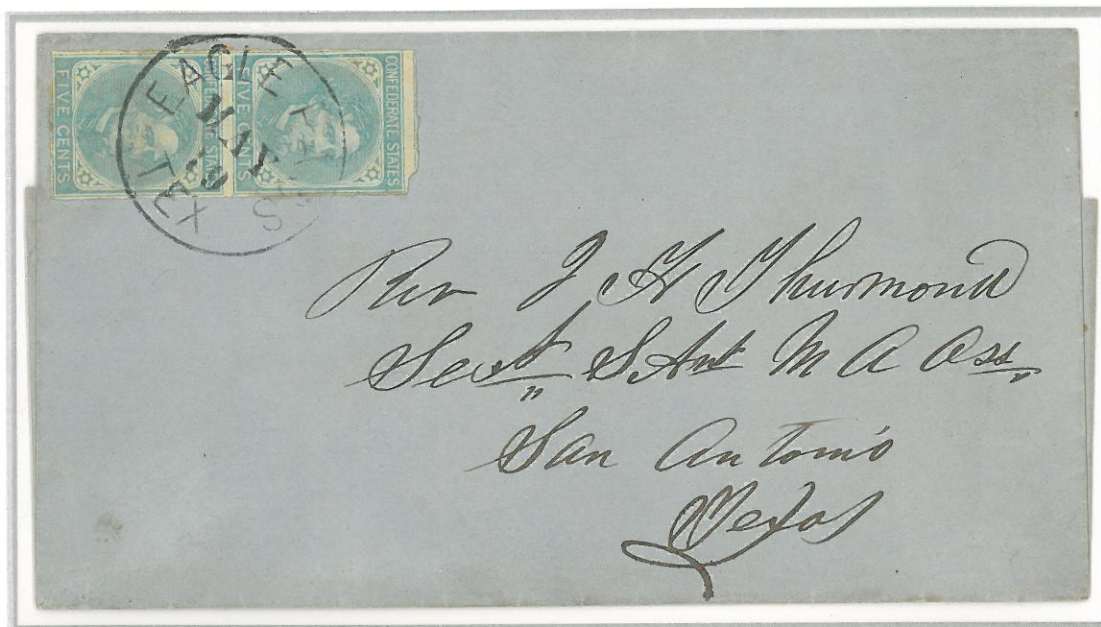 FIVE CENTS
CONFEDERATE STATES
FIVE CENTS
CONFEDERATE STATES
EAGLE PASS TEX
MAY
9
Rev J H Thurmond
Sect S Ant M A Ass
San Antonio
Texas